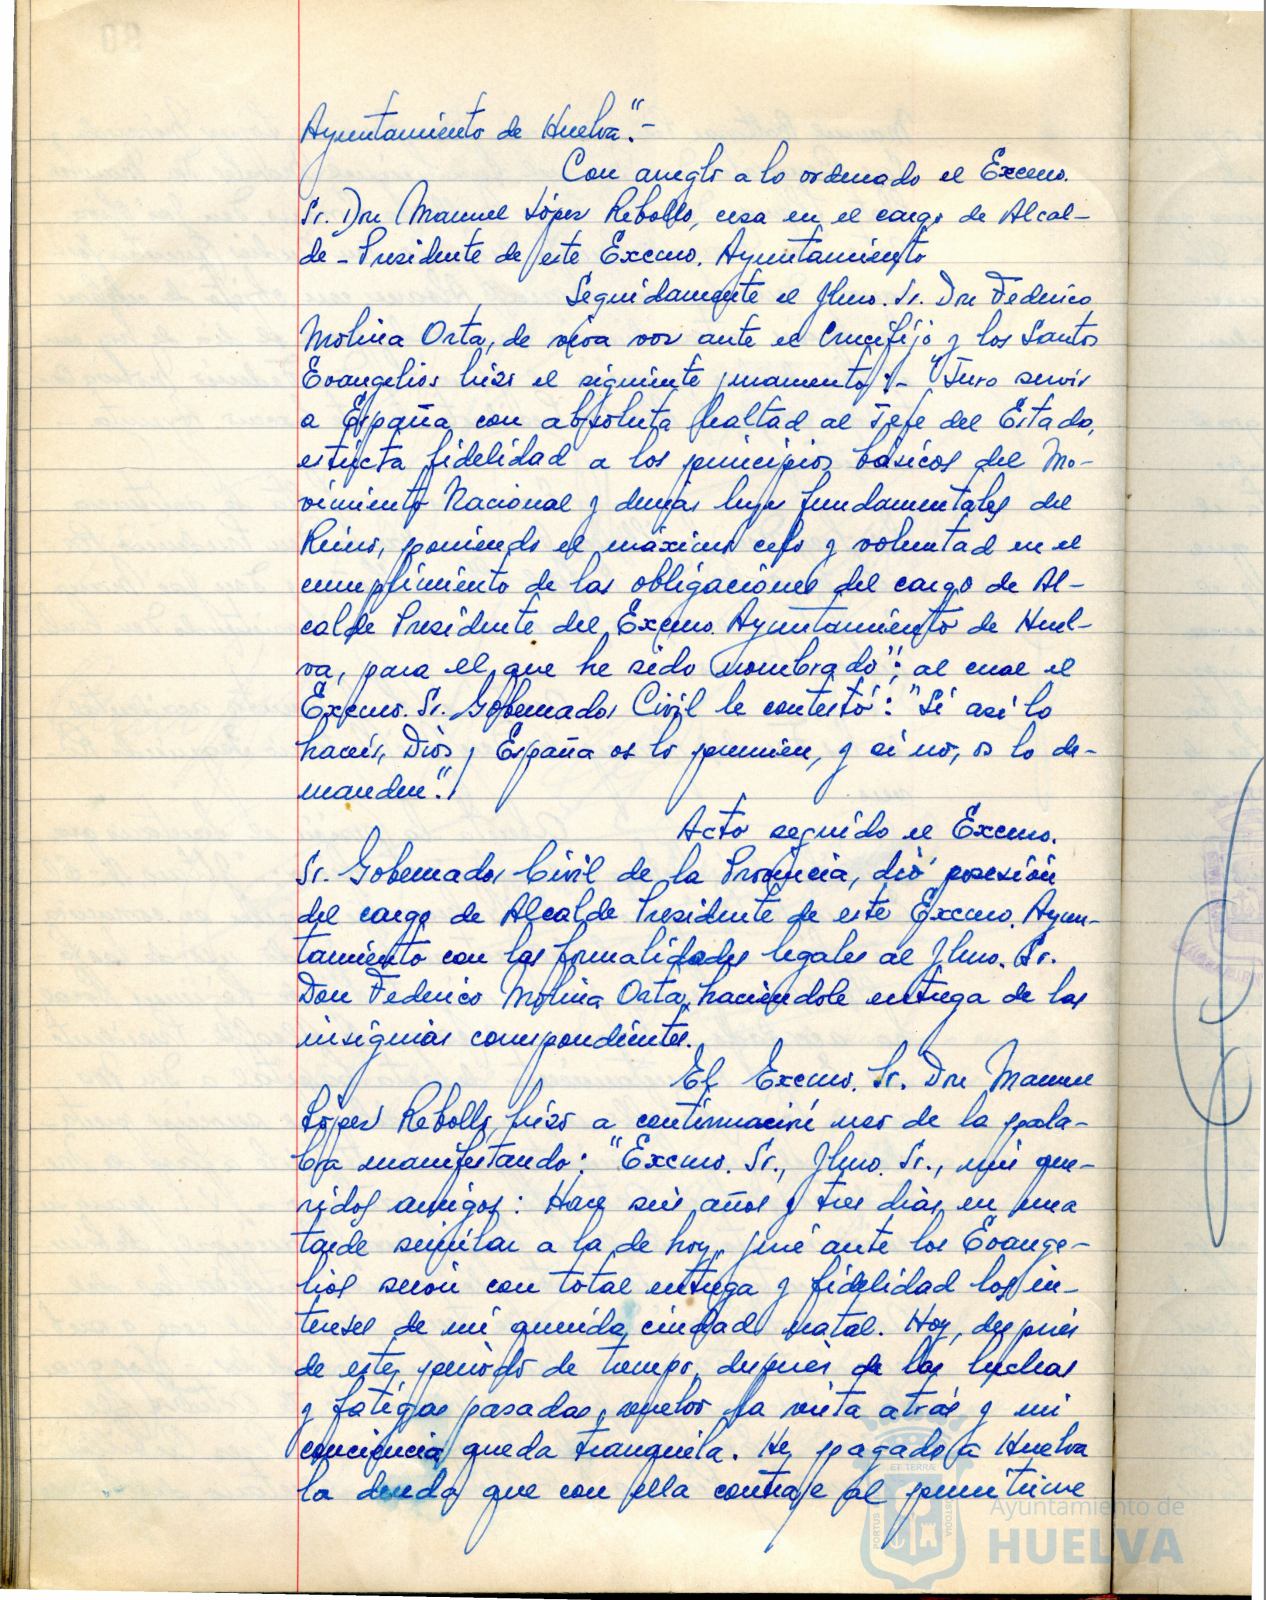 Ayuntamiento de Huelva".-
Con arreglo a lo ordenado el Excmo.
Sr. Don Manuel López Rebollo, cesa en el cargo de Alcal-
de-Presidente de este Excmo. Ayuntamiento
Seguidamente el Ilmo. Sr. Don Federico
Molina Orta, de viva voz ante el Crucifijo y los Santos
Evangelios hizo el siguiente juramento:- "Juro servir
a España con absoluta lealtad al Jefe del Estado,
estricta fidelidad a los principios básicos del Mo-
vimiento Nacional y demás leyes fundamentales del
Reino, poniendo el máximo celo y voluntad en el
cumplimiento de las obligaciones del cargo de Al-
calde Presidente del Excmo. Ayuntamiento de Huel-
va, para el que he sido nombrado"; al cual el
Excmo. Sr. Gobernador Civil le contestó: "Si así lo
hacéis, Dios y España os lo premien, y si no, os lo de-
manden".
Acto seguido el Excmo.
Sr. Gobernador Civil de la Provincia, dió posesión
del cargo de Alcalde Presidente de este Excmo. Ayun-
tamiento con las formalidades legales al Ilmo. Sr.
Don Federico Molina Orta, haciéndole entrega de las
insignias correspondientes.
El Excmo. Sr. Don Manuel
López Rebollo hizo a continuación uso de la pala-
bra manifestando: "Excmo. Sr., Ilmo. Sr., mis que-
ridos amigos: Hace seis años y tres días, en una
tarde similar a la de hoy, juré ante los Evange-
lios servir con total entrega y fidelidad los in-
tereses de mi querida ciudad natal. Hoy, después
de este periodo de tiempo, después de las luchas
y fatigas pasadas, vuelvo la vista atrás y mi
conciencia queda tranquila. He pagado a Huelva
la deuda que con ella contraje al permitirme
PORTUS
ET TERRAE
CUSTODIA
Ayuntamiento de
HUELVA